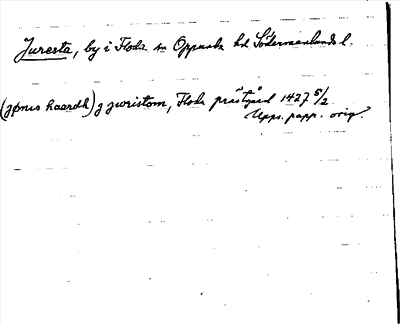 Juresta, by i Floda sn Oppunda hd Södermanlands l.
(jønis haardh) j jwristom, Floda prästgård 1427 5/2
Upps. papp. orig.